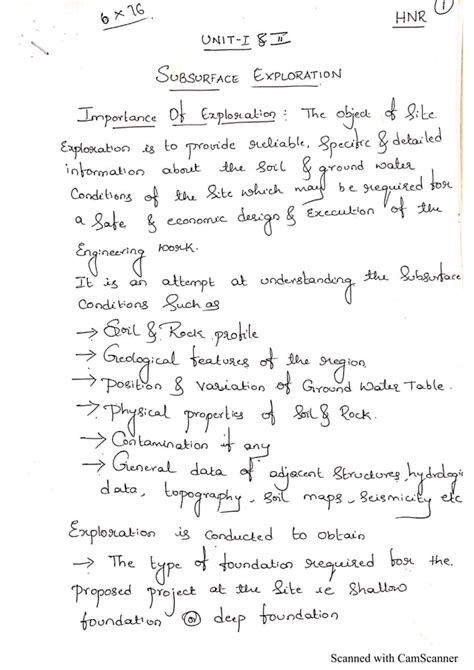 6 x 76
HNR 1
UNIT-I & II
SUBSURFACE EXPLORATION
Importance Of Exploration : The object of Site
Exploration is to provide reliable, Specific & detailed
information about the Soil & ground water
Conditions of the Site which may be required for
a Safe & economic design & Execution of the
Engineering work.
It is an attempt at understanding the Subsurface
Conditions Such as
→ Soil & Rock profile
→ Geological features of the region
→ Position & Variation of Ground Water Table.
→ Physical properties of Soil & Rock.
→ Contamination if any
→ General data of adjacent Structures, hydrologic
data, topography, Soil maps, Seismicity etc
Exploration is conducted to obtain
→ The type of foundation required for the
proposed project at the Site i.e Shallow
foundation or deep foundation
Scanned with CamScanner